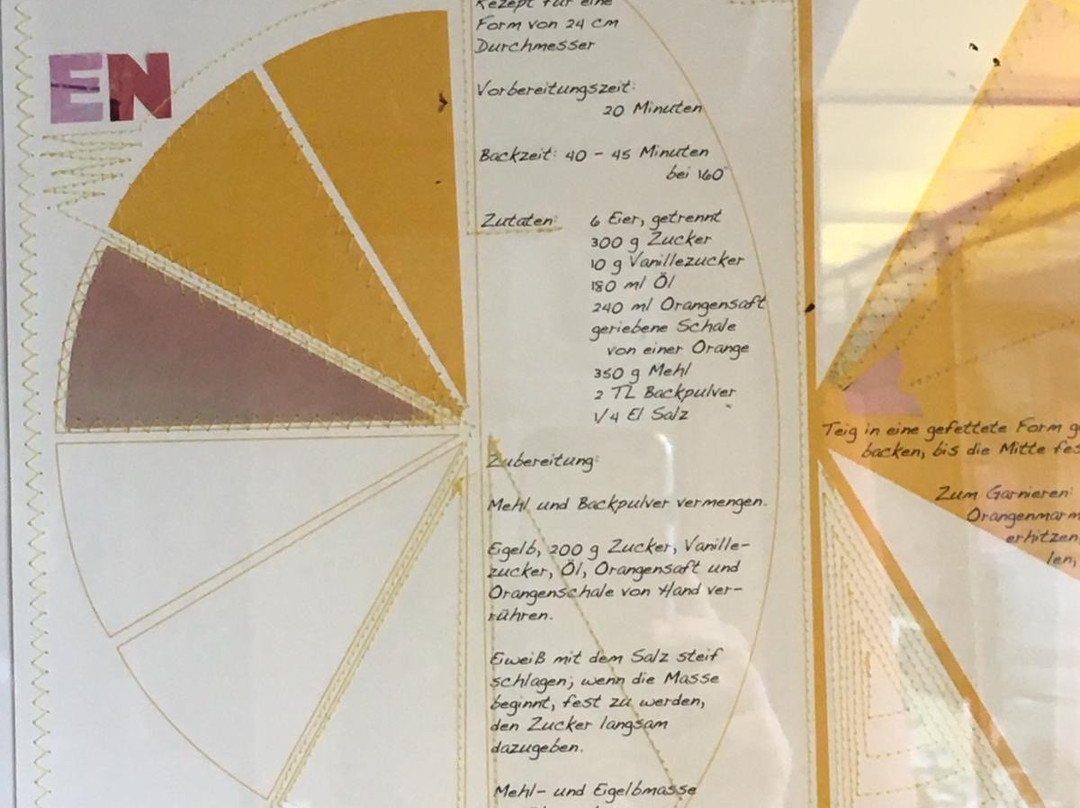 EN
Rezept für eine
Form von 24 cm
Durchmesser
Vorbereitungszeit:
20 Minuten
Backzeit: 40 - 45 Minuten
bei 160°
Zutaten:
6 Eier, getrennt
300 g Zucker
10 g Vanillezucker
180 ml Öl
240 ml Orangensaft
geriebene Schale
von einer Orange
350 g Mehl
2 TL Backpulver
1/4 El Salz
Zubereitung:
Mehl und Backpulver vermengen.
Eigelb, 200 g Zucker, Vanille-
zucker, Öl, Orangensaft und
Orangenschale von Hand ver-
rühren.
Eiweiß mit dem Salz steif
schlagen; wenn die Masse
beginnt, fest zu werden,
den Zucker langsam
dazugeben.
Mehl- und Eigelbmasse
Teig in eine gefettete Form g
backen, bis die Mitte fes
Zum Garnieren:
Orangenmarm
erhitzen,
len,